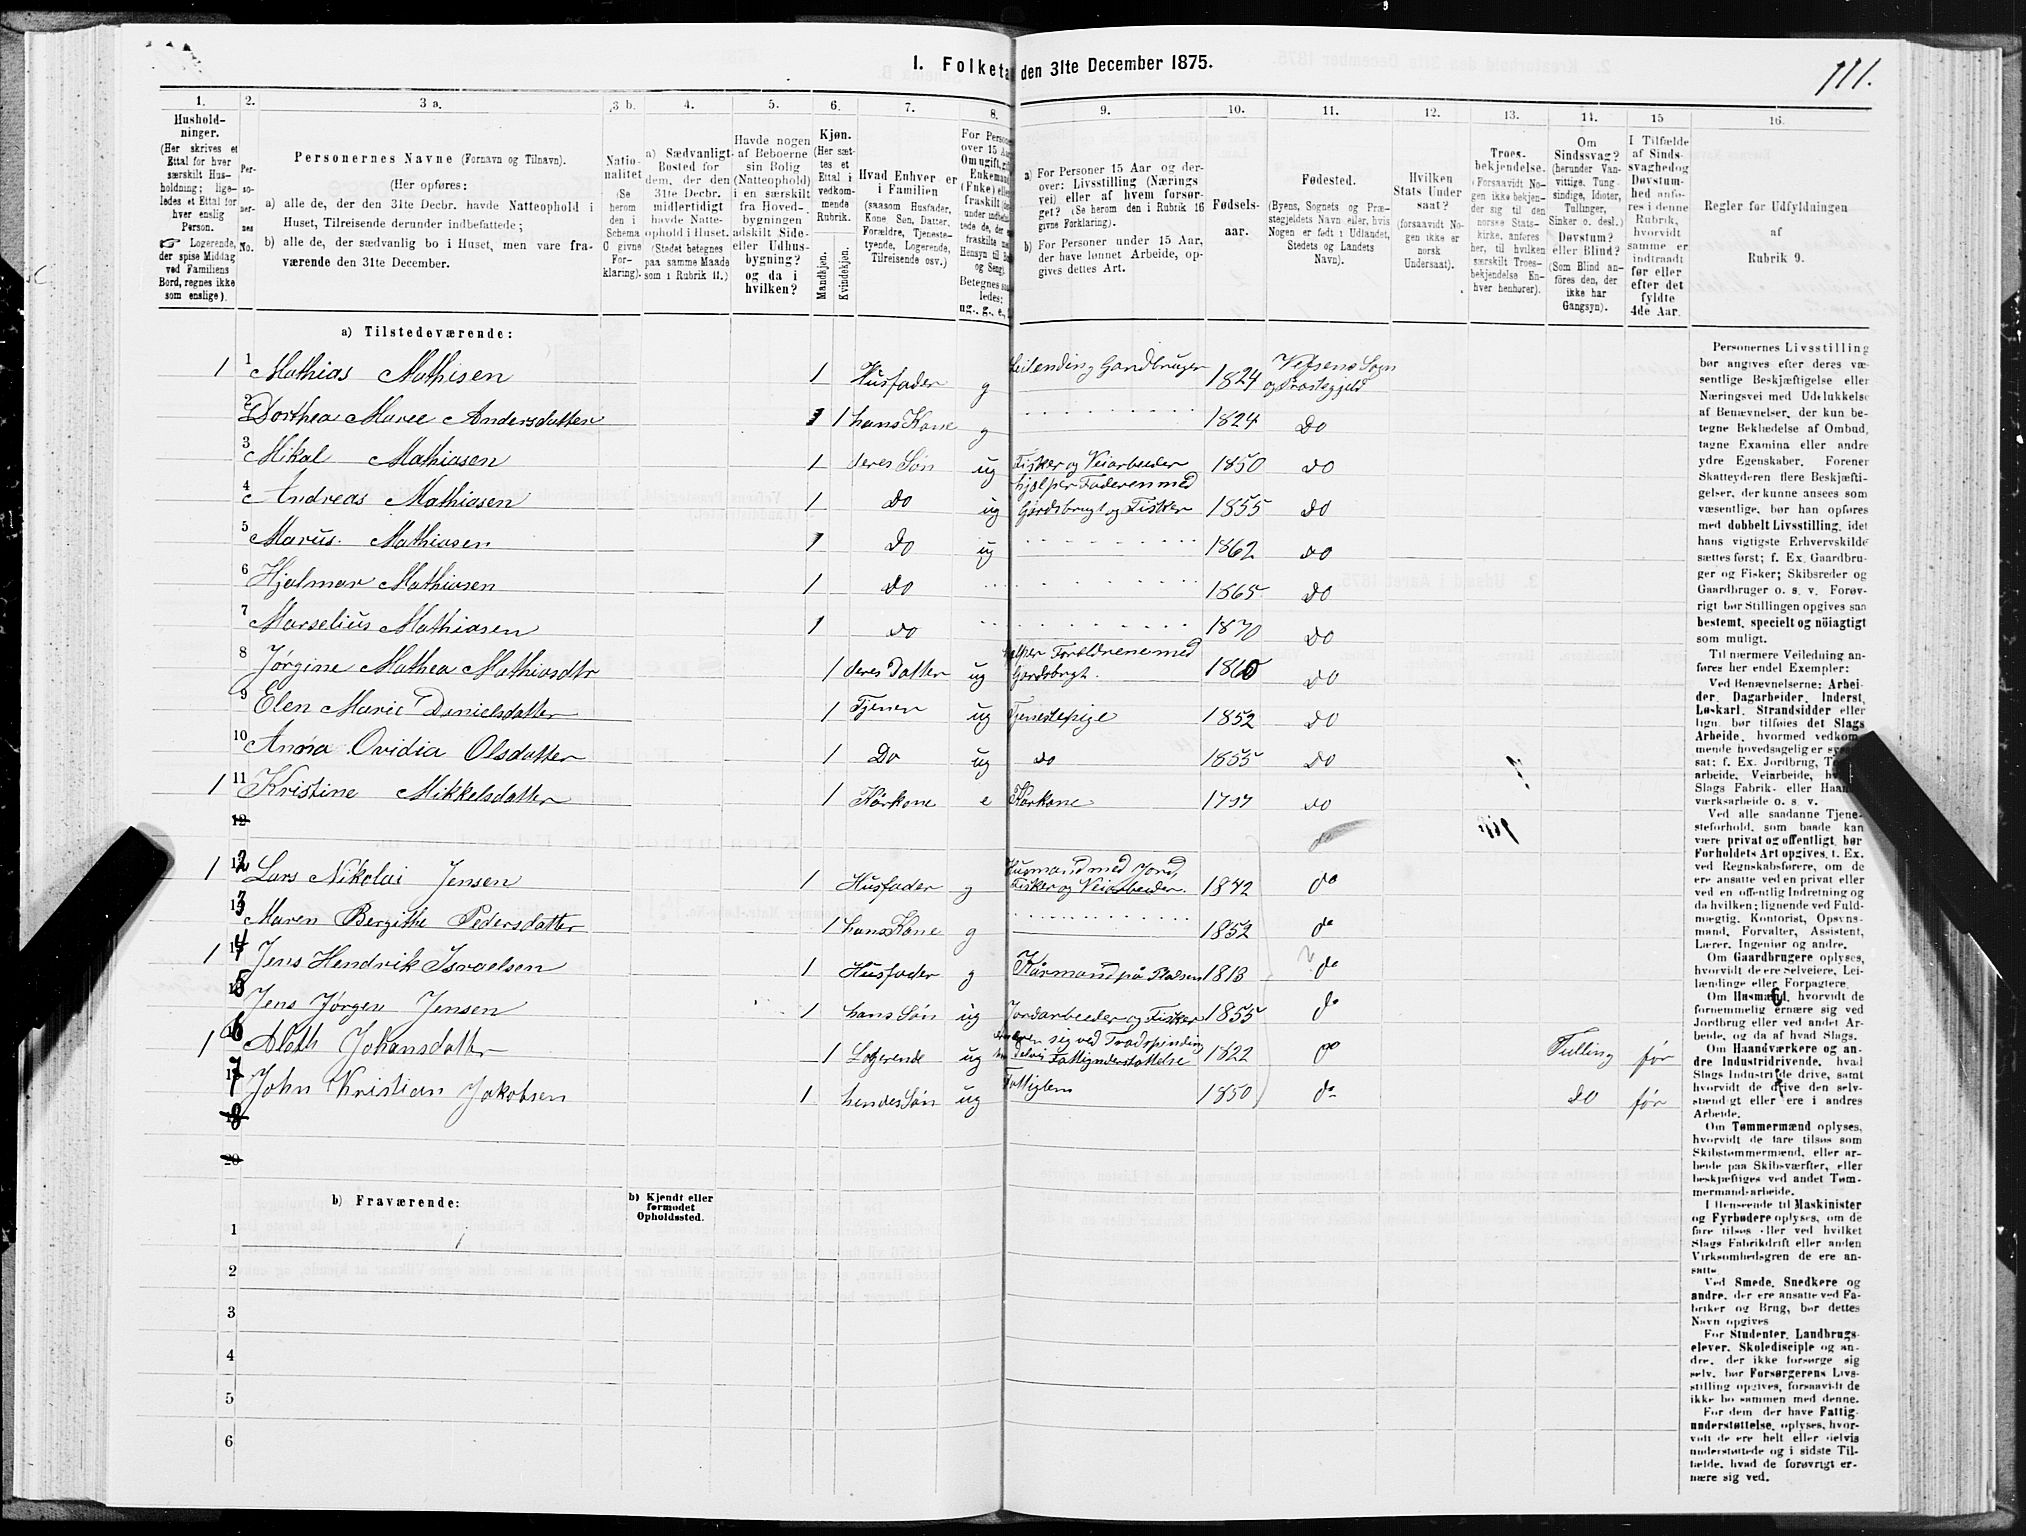 111.
1. Folketæ den 31te December 1875.
1. 2. 3 a. 3 b. 4. 5. 6. 7. 8. 9. 10. 11. 12. 13. 14. 15 16.
Hushold-
ninger.
(Her skrives et
Ettal for hver
særskilt Hus-
holdning; lige-
ledes et Ettal for
hver enslig
Person.
☞ Logerende,
der spise Middag
ved Familiens
Bord, regnes ikke
som enslige).
Personernes Navne (Fornavn og Tilnavn).
(Her opføres:
a) alle de, der den 31te Decbr. havde Natteophold i
Huset, Tilreisende derunder indbefattede;
b) alle de, der sædvanlig bo i Huset, men vare fra-
værende den 31te December.
Natio-
nalitet
(Se
herom
den i
Schema
C givne
For-
klaring).
a) Sædvanligt
Bosted for
dem, der den
31te Decbr.
midlertidigt
havde Natte-
ophold i Huset.
(Stedet betegnes
paa samme Maade
som i Rubrik 11.)
Havde nogen
af Beboerne
sin Bolig
(Natteophold)
i en særskilt
fra Hoved-
bygningen
adskilt Side-
eller Udhus-
bygning?
og da i
hvilken?
Kjøn.
(Her sæt-
tes et
Ettal i
vedkom-
mende
Rubrik.
Mandkjøn.
Kvindekjøn.
Hvad Enhver er
i Familien
(saasom Husfader,
Kone, Søn, Datter,
Forældre, Tjeneste-
tyende, Logerende,
Tilreisende osv.)
a) For Personer 15 Aar og der-
over: Livsstilling (Nærings
vei) eller af hvem forsør-
get? (Se herom den i Rubrik 16
givne Forklaring).
b) For Personer under 15 Aar,
der have lønnet Arbeide, op-
gives dettes Art.
Fødsels-
aar.
Fødested.
(Byens, Sognets og Præ-
stegjeldets Navn eller, hvis
Nogen er født i Udlandet,
Stedets og Landets
Navn).
Hvilken
Stats Under
saat?
(forsaavidt No-
gen ikke er
norsk
Undersaat).
Troes-
bekjendelse.
(Forsaavidt No-
gen ikke bekjen-
der sig til den
norske Stats-
kirke, anføres
her, til hvilken
særskilt Troes-
bekjendelse En-
hver henhører).
Om
Sindssvag?
(herunder Van-
vittige, Tung-
sindige, Idioter,
Tullinger,
Sinker o. desl.)
Døvstum?
eller Blind?
(Som Blind an-
føres den, der
ikke har
Gangsyn).
I Tilfælde
af Sinds-
svaghed og
Døvstum-
hed anfø-
res i denne
Rubrik,
hvorvidt
samme er
indtraadt
før eller
efter det
fyldte
4de Aar.
Regler for Udfyldningen
af
Rubrik 9.
a) Tilstedeværende:
1 1 Mathias Mathisen 1 Husfader g Leilending Gardbruger 1824 Vefsens Sogn og Prostegjeld
2 Dorthea Marie Andersdatter 1 hans Kone g 1824 Do
3 Mikal Mathiasen 1 deres Søn ug Fisker og Veiarbeider 1850 do
4 Andreas Mathiasen 1 Do ug hjelper Faderen med Gardsbrugt og Fisker 1855 do
5 Marius Mathiasen 1 Do ug 1862 do
6 Hjalmar Mathiasen 1 do 1865 do
7 Marselius Mathiasen 1 do 1870 do
8 Jørgine Mathea Mathiasdtr 1 deres Datter ug hjelper Foreldrene med Gardsbrugt. 1860 do
9 Elen Marie Danielsdatter 1 Tjener ug Tjenestepige 1852 do
10 Anna Ovidia Olsdatter 1 Do ug do 1855 do
1 11 Kristine Mikkelsdatter 1 Kårkone e Kårkone 1797 do
12
1 12 Lars Nikolai Jensen 1 Husfader g Husmand med Jord, Fisker og Veiarbeider. 1842 do
13 Maren Bergithe Pedersdatter 1 hans Kone g 1852 do
1 14 Jens Hendrik Israelsen 1 Husfader g Kårmand på Pladsen 1813 do
15 Jens Jørgen Jensen 1 hans Søn ug Jordarbeider og Fisker 1855 do
1 16 Johansdatter 1 Logerende ug ernærer sig ved Traadspinding delvis Fattigunderstøttelse 1822 do Tulling før
17 John Kristian Jakobsen 1 hendes Søn ug Fattiglem 1850 do do før
18
20
b) Fraværende:
b) Kjendt eller
formodet
Opholdssted.
1
2
3
4
5
6
Personernes Livsstilling
bør angives efter deres væ-
sentlige Beskjæftigelse eller
Næringsvei med Udelukkelse
af Benævnelser, der kun be-
tegne Beklædelse af Ombud,
tagne Examina eller andre
ydre Egenskaber. Forener
Skatteyderen flere Beskjæfti-
gelser, der kunne ansees som
væsentlige, bør han opføres
med dobbelt Livsstilling, idet
hans vigtigste Erhvervskilde
sættes først; f. Ex. Gaardbru-
ger og Fisker; Skibsreder og
Gaardbruger o. s. v. Forøv-
rigt bør Stillingen opgives saa
bestemt, specielt og nöiagtigt
som muligt.
Til nærmere Veiledning an-
føres her endel Exempler:
Ved Benævnelserne: Arbei-
der, Dagarbeider, Inderst,
Løskarl, Strandsidder eller
lign. bør tilføies det Slags
Arbeide, hvormed vedkom-
mende hovedsagelig er
sat; f. Ex. Jordbrug,
arbeide, Veiarbeide,
Slags Fabrik- eller
værksarbeide o. s. v.
Ved alle saadanne Tjene-
steforhold, som baade kan
være privat og offentligt, bør
Forholdets Art opgives, t. Ex.
ved Regnskabsførere, om de
ere ansatte ved en privat eller
ved en offentlig Indretning og
da hvilken; lignende ved Fuld-
mægtig, Kontorist, Opsyns-
mand, Forvalter, Assistent,
Lærer, Ingeniør og andre.
Om Gaardbrugere oplyses,
hvorvidt de ere Selveiere, Lei-
lændinge eller Forpagtere.
Om Husmænd, hvorvidt de
fornemmelig ernære sig ved
Jordbrug eller ved andet Ar-
beide, og da af hvad Slags.
Om Haandværkere og an-
dre Industridrivende, hvad
Slags Industri de drive, samt
hvorvidt de drive den selv-
stændigt eller ere i andres
Arbeide.
Om Tømmermænd oplyses,
hvorvidt de fare tilsøs som
Skibstømmermænd, eller ar-
beide paa Skibsværfter, eller
beskjæftiges ved andet Tøm-
mermand-arbeide.
I Henseende til Maskinister
og Fyrbødere oplyses, om de
fare tilsøs eller ved hvilket
Slags Fabrikdrift eller anden
Virksomhedsgren de ere an-
satte.
Ved Smede, Snedkere og
andre, der ere ansatte ved Fa-
briker og Brug, bør dettes
Navn opgives
For Studenter, Landbrugs-
elever, Skoledisciple og an-
dre, der ikke forsørge sig
selv, bør Forsørgerens Livs-
stilling opgives, forsaavidt de
ikke bo sammen med denne.
For dem, der have Fattig-
understøttelse, oplyses, hvor-
vidt de ere helt eller delvis
understøttede og i sidste Til-
fælde, hvad de forøvrigt er-
nære sig ved.